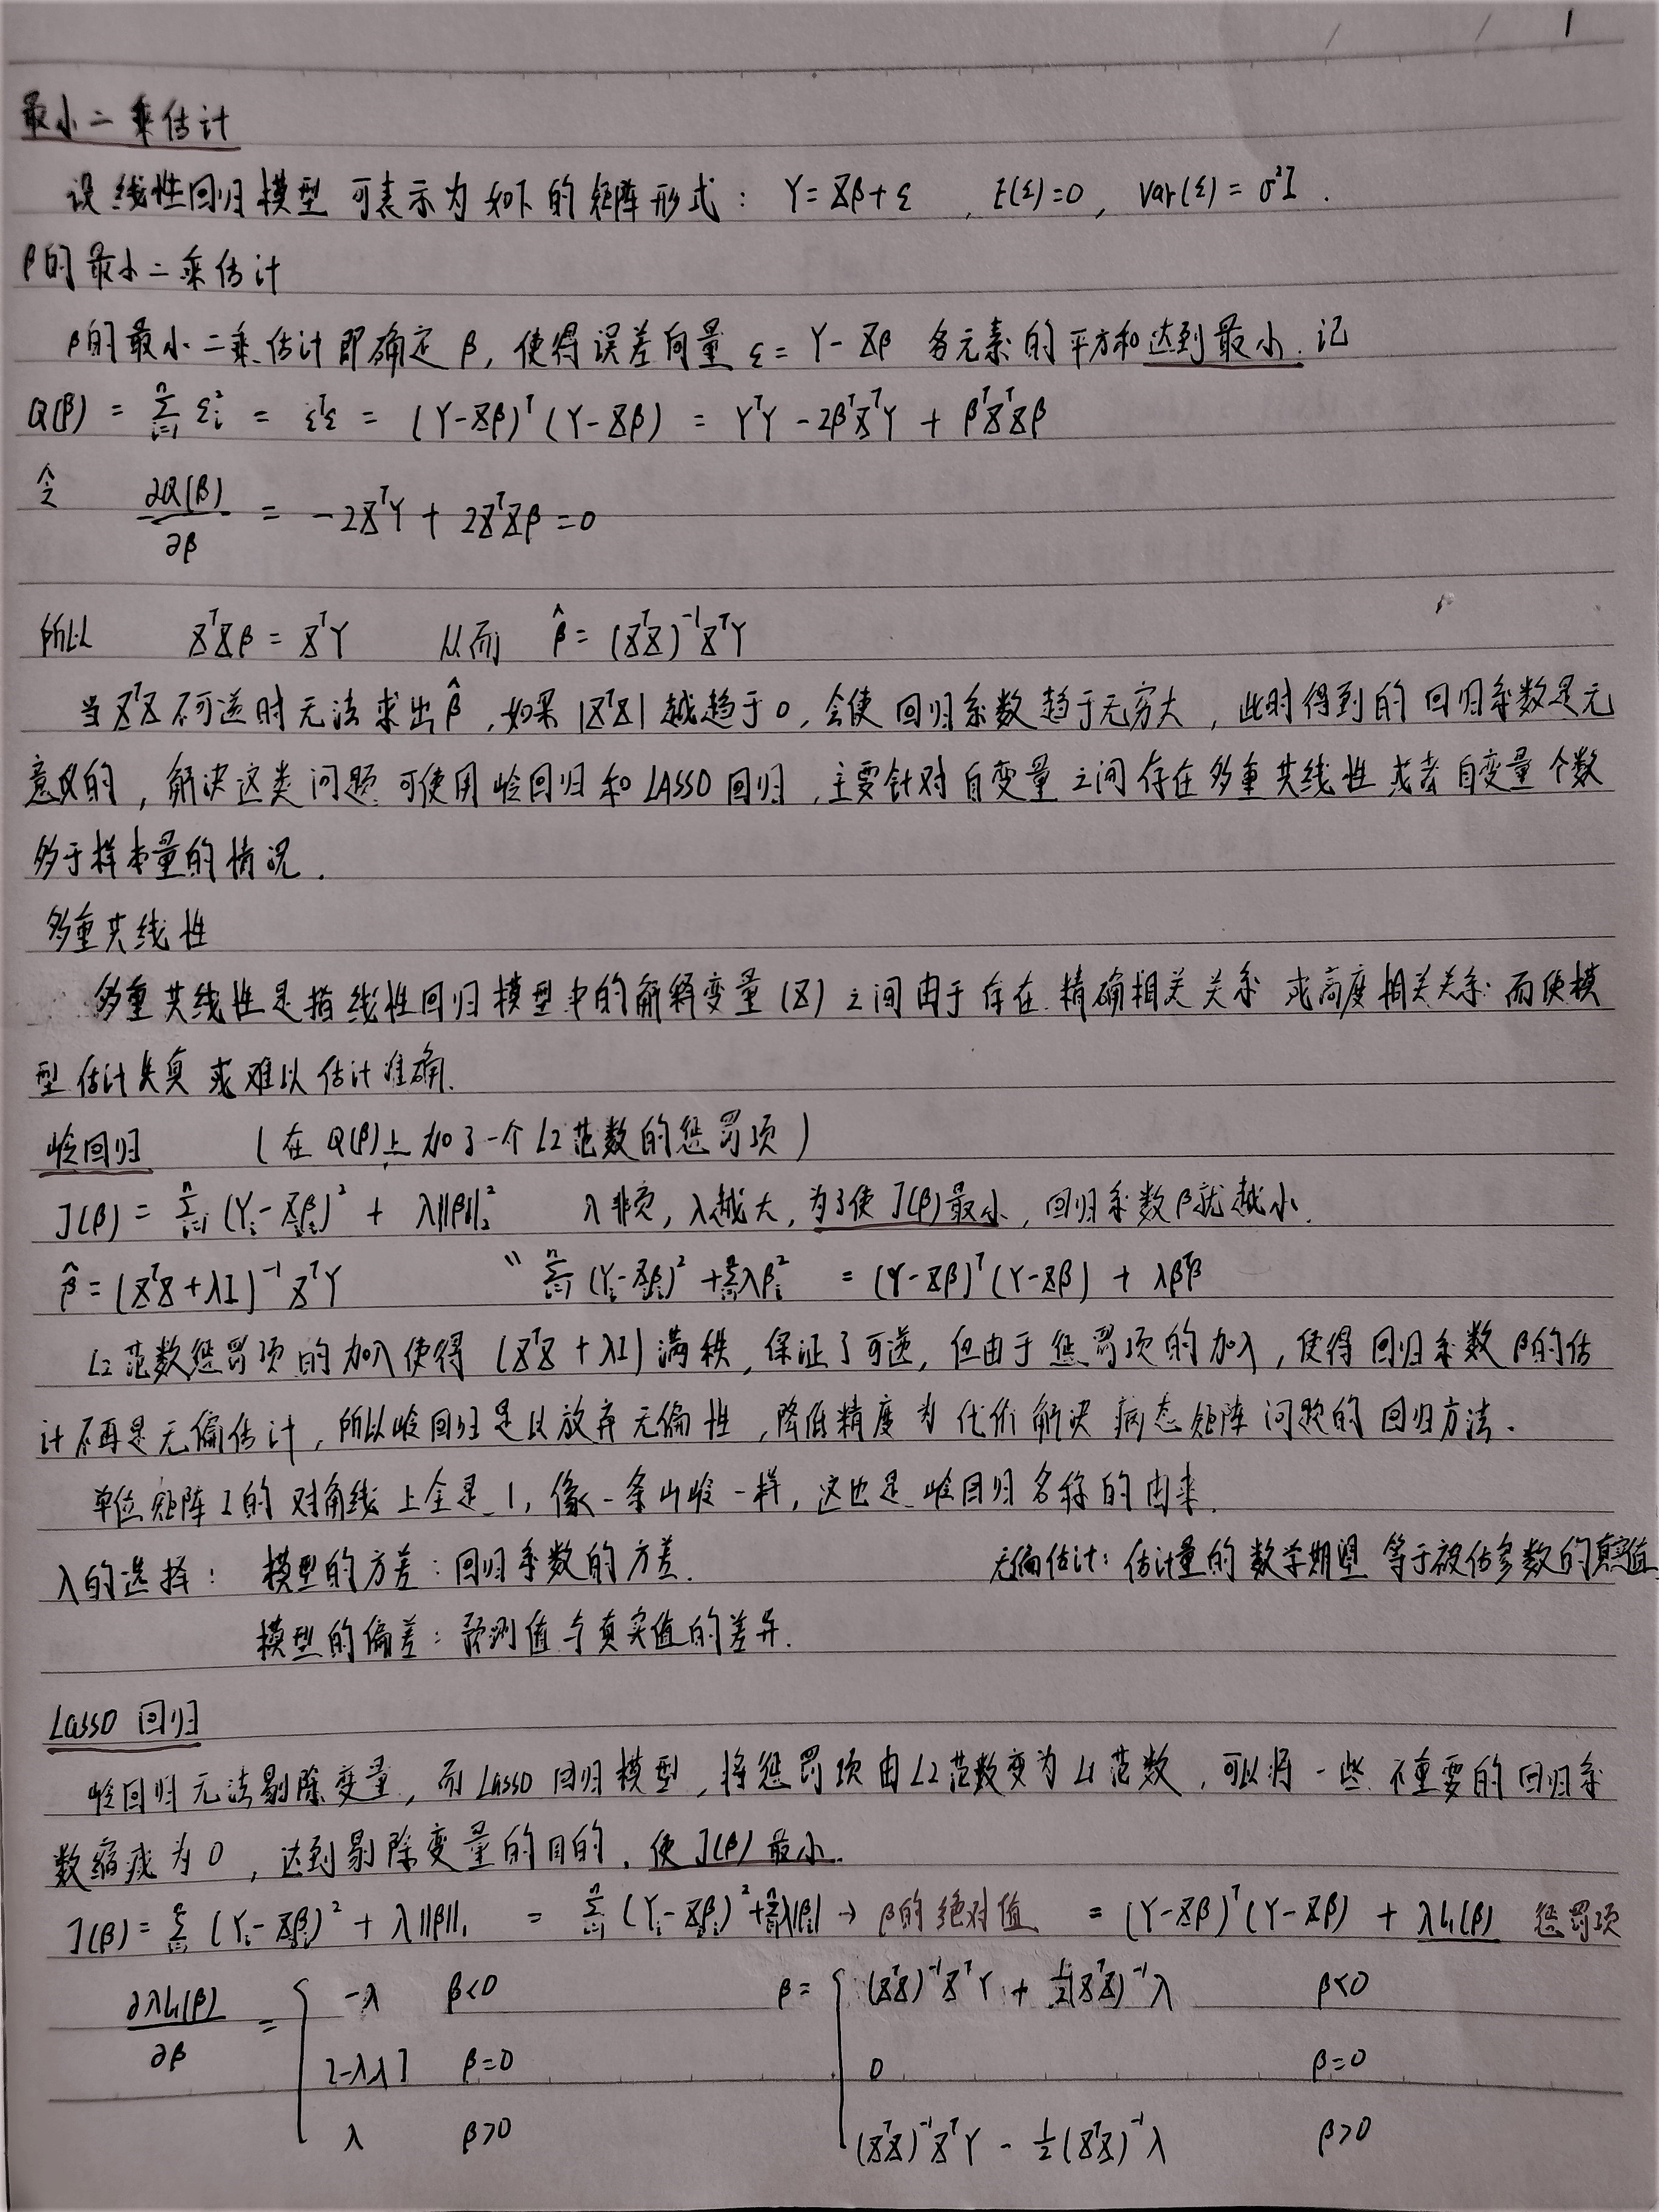 1
最小二乘估计
设线性回归模型可表示为如下的矩阵形式: Y=Xβ+ε , E(ε)=0, Var(ε)=σ²I.
β的最小二乘估计
β的最小二乘估计即确定β, 使得误差向量 ε=Y-Xβ 各元素的平方和达到最小. 记
Q(β) = Σᵢ₌₁ⁿ εᵢ² = εᵀε = (Y-Xβ)ᵀ(Y-Xβ) = YᵀY - 2βᵀXᵀY + βᵀXᵀXβ
令 ∂Q(β)/∂β = -2XᵀY + 2XᵀXβ = 0
所以 XᵀXβ = XᵀY 从而 β̂ = (XᵀX)⁻¹XᵀY
当XᵀX不可逆时无法求出β̂, 如果|XᵀX|越趋于0, 会使回归系数趋于无穷大, 此时得到的回归系数是无
意义的, 解决这类问题可使用岭回归和LASSO回归, 主要针对自变量之间存在多重共线性或者自变量个数
多于样本量的情况.
多重共线性
多重共线性是指线性回归模型中的解释变量(X)之间由于存在精确相关关系或高度相关关系而使模
型估计失真或难以估计准确.
岭回归 (在Q(β)上加了一个L2范数的惩罚项)
J(β) = Σᵢ₌₁ⁿ (Yᵢ-Xβᵢ)² + λ||β||₂² λ非负, λ越大, 为了使J(β)最小, 回归系数β就越小.
β̂ = (XᵀX+λI)⁻¹XᵀY " Σᵢ₌₁ⁿ (Yᵢ-Xβᵢ)² + Σᵢ₌₁ⁿ λβᵢ² = (Y-Xβ)ᵀ(Y-Xβ) + λβᵀβ
L2范数惩罚项的加入使得(XᵀX+λI)满秩, 保证了可逆, 但由于惩罚项的加入, 使得回归系数β的估
计不再是无偏估计, 所以岭回归是以放弃无偏性, 降低精度为代价解决病态矩阵问题的回归方法.
单位矩阵I的对角线上全是1, 像一条山岭一样, 这也是岭回归名称的由来.
λ的选择: 模型的方差: 回归系数的方差. 无偏估计: 估计量的数学期望等于被估参数的真实值
模型的偏差: 预测值与真实值的差异.
Lasso 回归
岭回归无法剔除变量, 而Lasso回归模型, 将惩罚项由L2范数变为L1范数, 可以将一些不重要的回归系
数缩减为0, 达到剔除变量的目的. 使J(β)最小.
J(β) = Σᵢ₌₁ⁿ (Yᵢ-Xβᵢ)² + λ||β||₁ = Σᵢ₌₁ⁿ (Yᵢ-Xβᵢ)² + Σᵢ₌₁ⁿ λ|βᵢ| → β的绝对值 = (Y-Xβ)ᵀ(Y-Xβ) + λL₁(β) 惩罚项
∂λL₁(β)/∂β = { -λ β<0 β = { (XᵀX)⁻¹XᵀY + ½(XᵀX)⁻¹λ β<0
[-λ λ] β=0 0 β=0
λ β>0 (XᵀX)⁻¹XᵀY - ½(XᵀX)⁻¹λ β>0